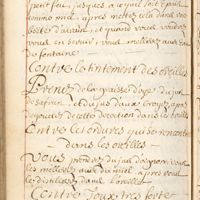 petit feu, jusques a ce qu'il soit Espaix
comme miel, apres mettez cela dans une
boëtte d'airain, et quand vous voudrez
vous en servir, vous meslerez aux Eau
de fontaine
Contre le tintement des oreilles
Prenez de la graisse d'oye, du jus
de safran et du jus d'aux
cette decoction dans les oreilles
Contre les ordures qui se rencontrent
dans les oreilles
Vous prendrez du jus d'oignon, vous
les meslerez aux du miel, apres vous
le distillerez dans l'oreille
Contre Toux tres forte